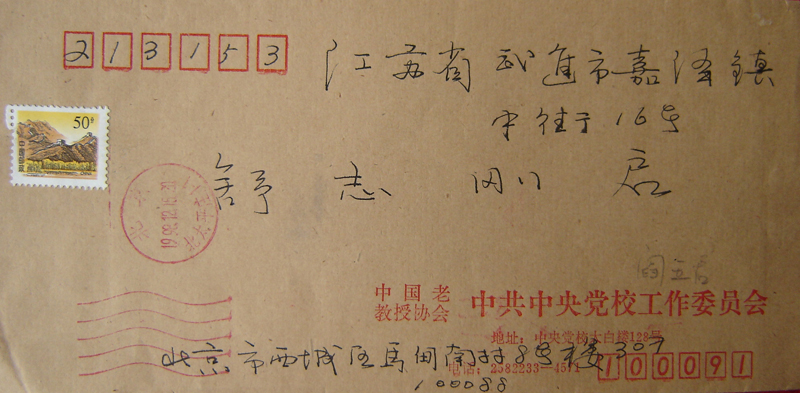 213153
江苏省武进市嘉泽镇
中街于16号
舒志刚 启
50分
中国邮政
北京
1998.12.16.20
中国老
教授协会
中共中央党校工作委员会
地址:中央党校大白楼122号
电话:2582233—4571
100091
北京市西城区馬甸南村8号楼307
100088